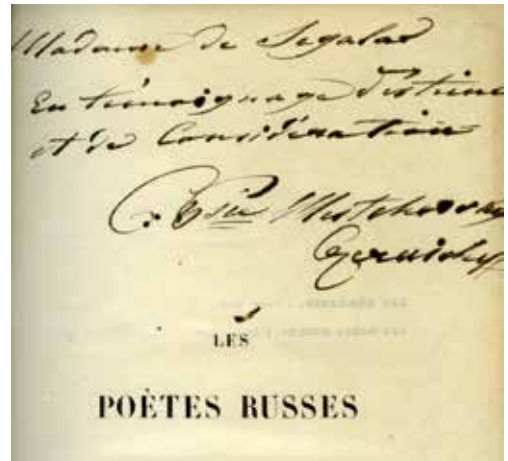 Madame de Segalas
En témoignage d'estime
et de Considération
Psse Mestchersky
LES
POÈTES RUSSES